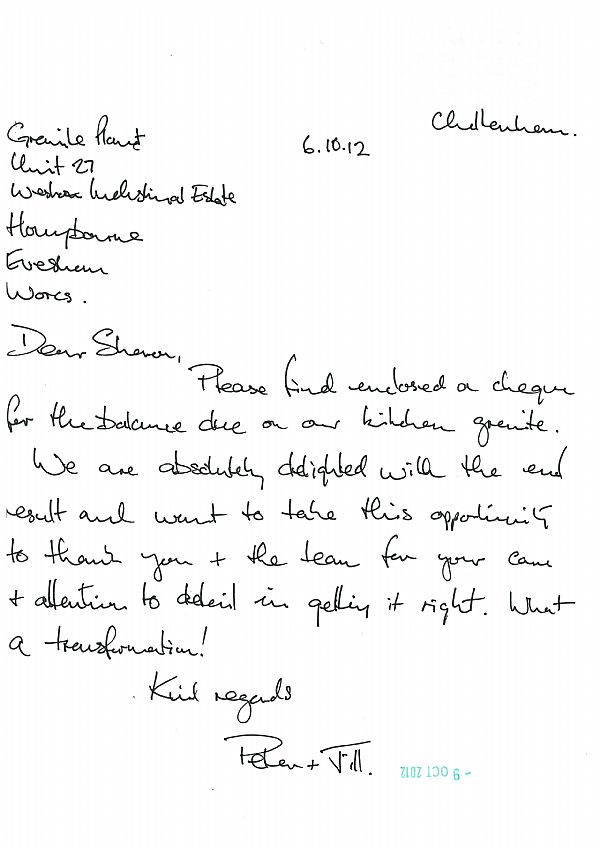 Cheltenham.
6.10.12
Granite Planet
Unit 27
Weston Industrial Estate
Honeybourne
Evesham
Worcs.
Dear Sharon,
Please find enclosed a cheque
for the balance due on our kitchen granite.
We are absolutely delighted with the end
result and want to take this opportunity
to thank you + the team for your care
+ attention to detail in getting it right. What
a transformation!
Kind regards
Peter + Jill.
- 9 OCT 2012